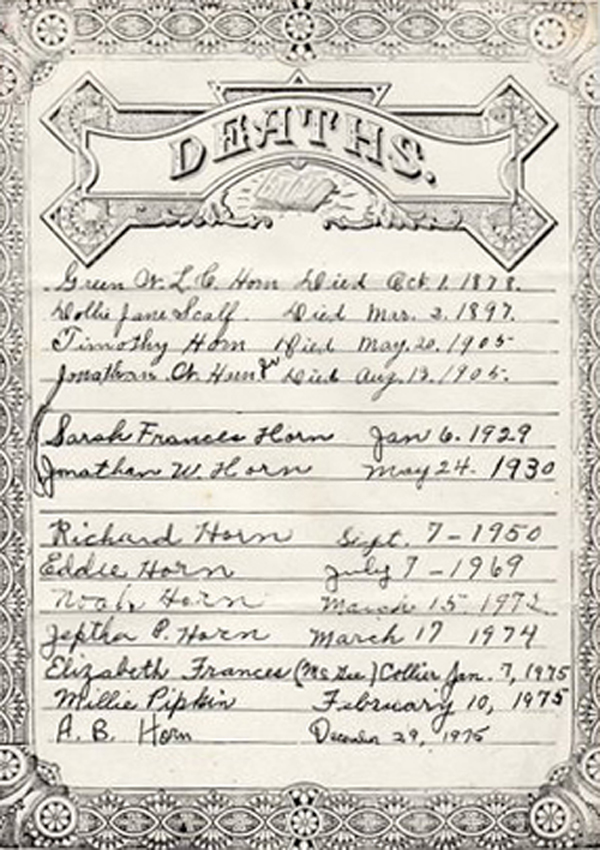 DEATHS.
Green W. L. C Horn Died Oct. 1. 1878.
Dollie Jane Scalf. Died Mar. 2. 1897.
Timothy Horn Died May. 20. 1905
Jonathan W. Horn Jr Died Aug. 13. 1905.
Sarah Frances Horn Jan 6. 1929
Jonathan W. Horn May 24. 1930
Richard Horn Sept. 7-1950
Eddie Horn July 7-1969
Noah Horn March 15 1972
Jeptha P. Horn March 17 1974
Elizabeth Frances (McGee) Collier Jan. 7, 1975
Millie Pipkin February 10, 1975
A. B. Horn December 29, 1975